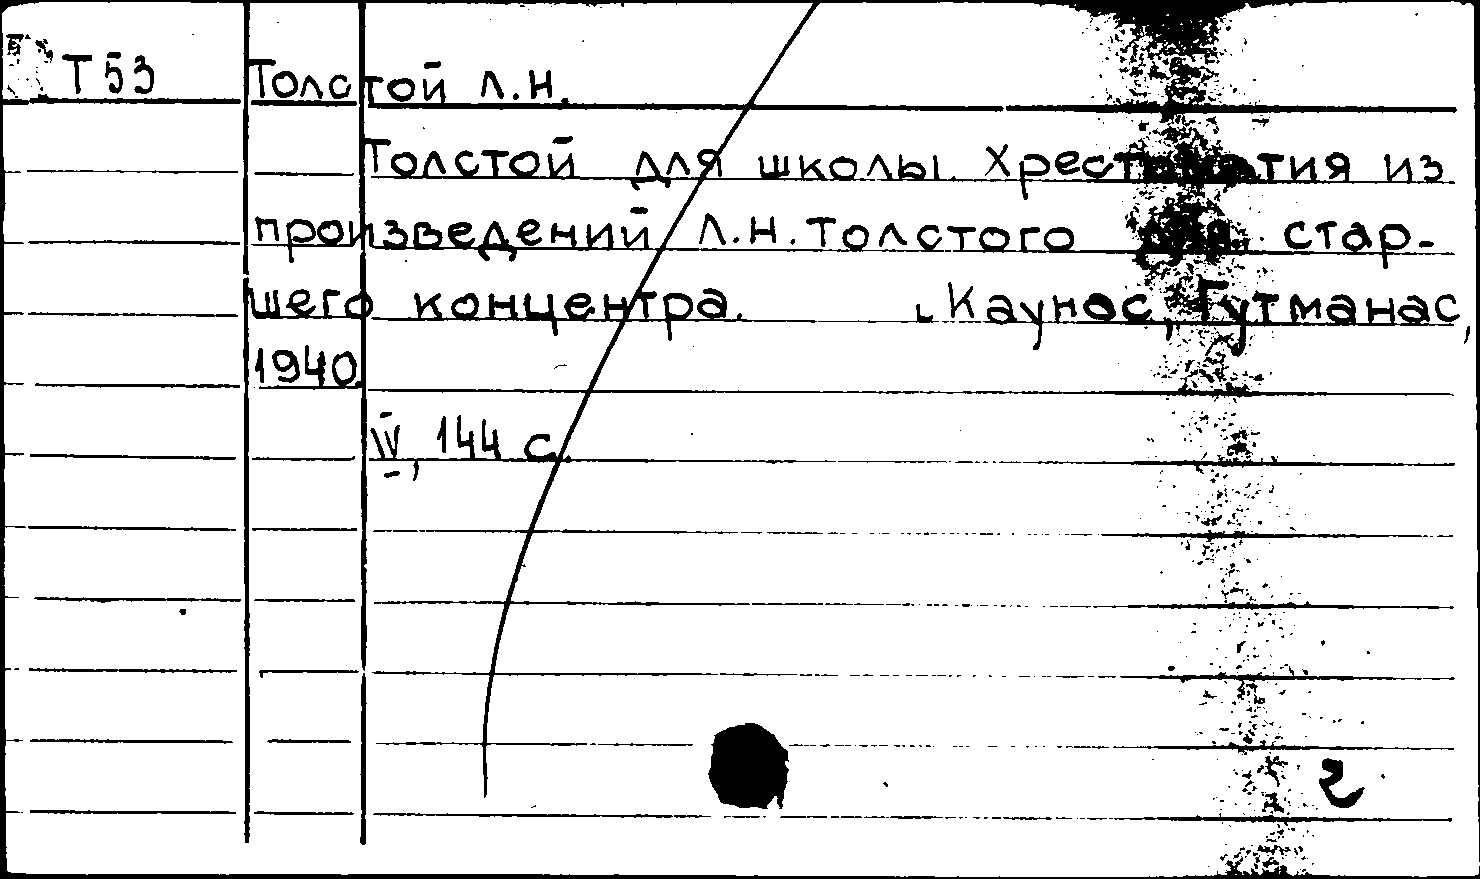 Т53 Толстой Л.Н.
Толстой для школы. Хрестоматия из
произведений Л.Н.Толстого для стар-
шего концентра. Каунас, Гутманас,
1940.
IV, 144 с.
г